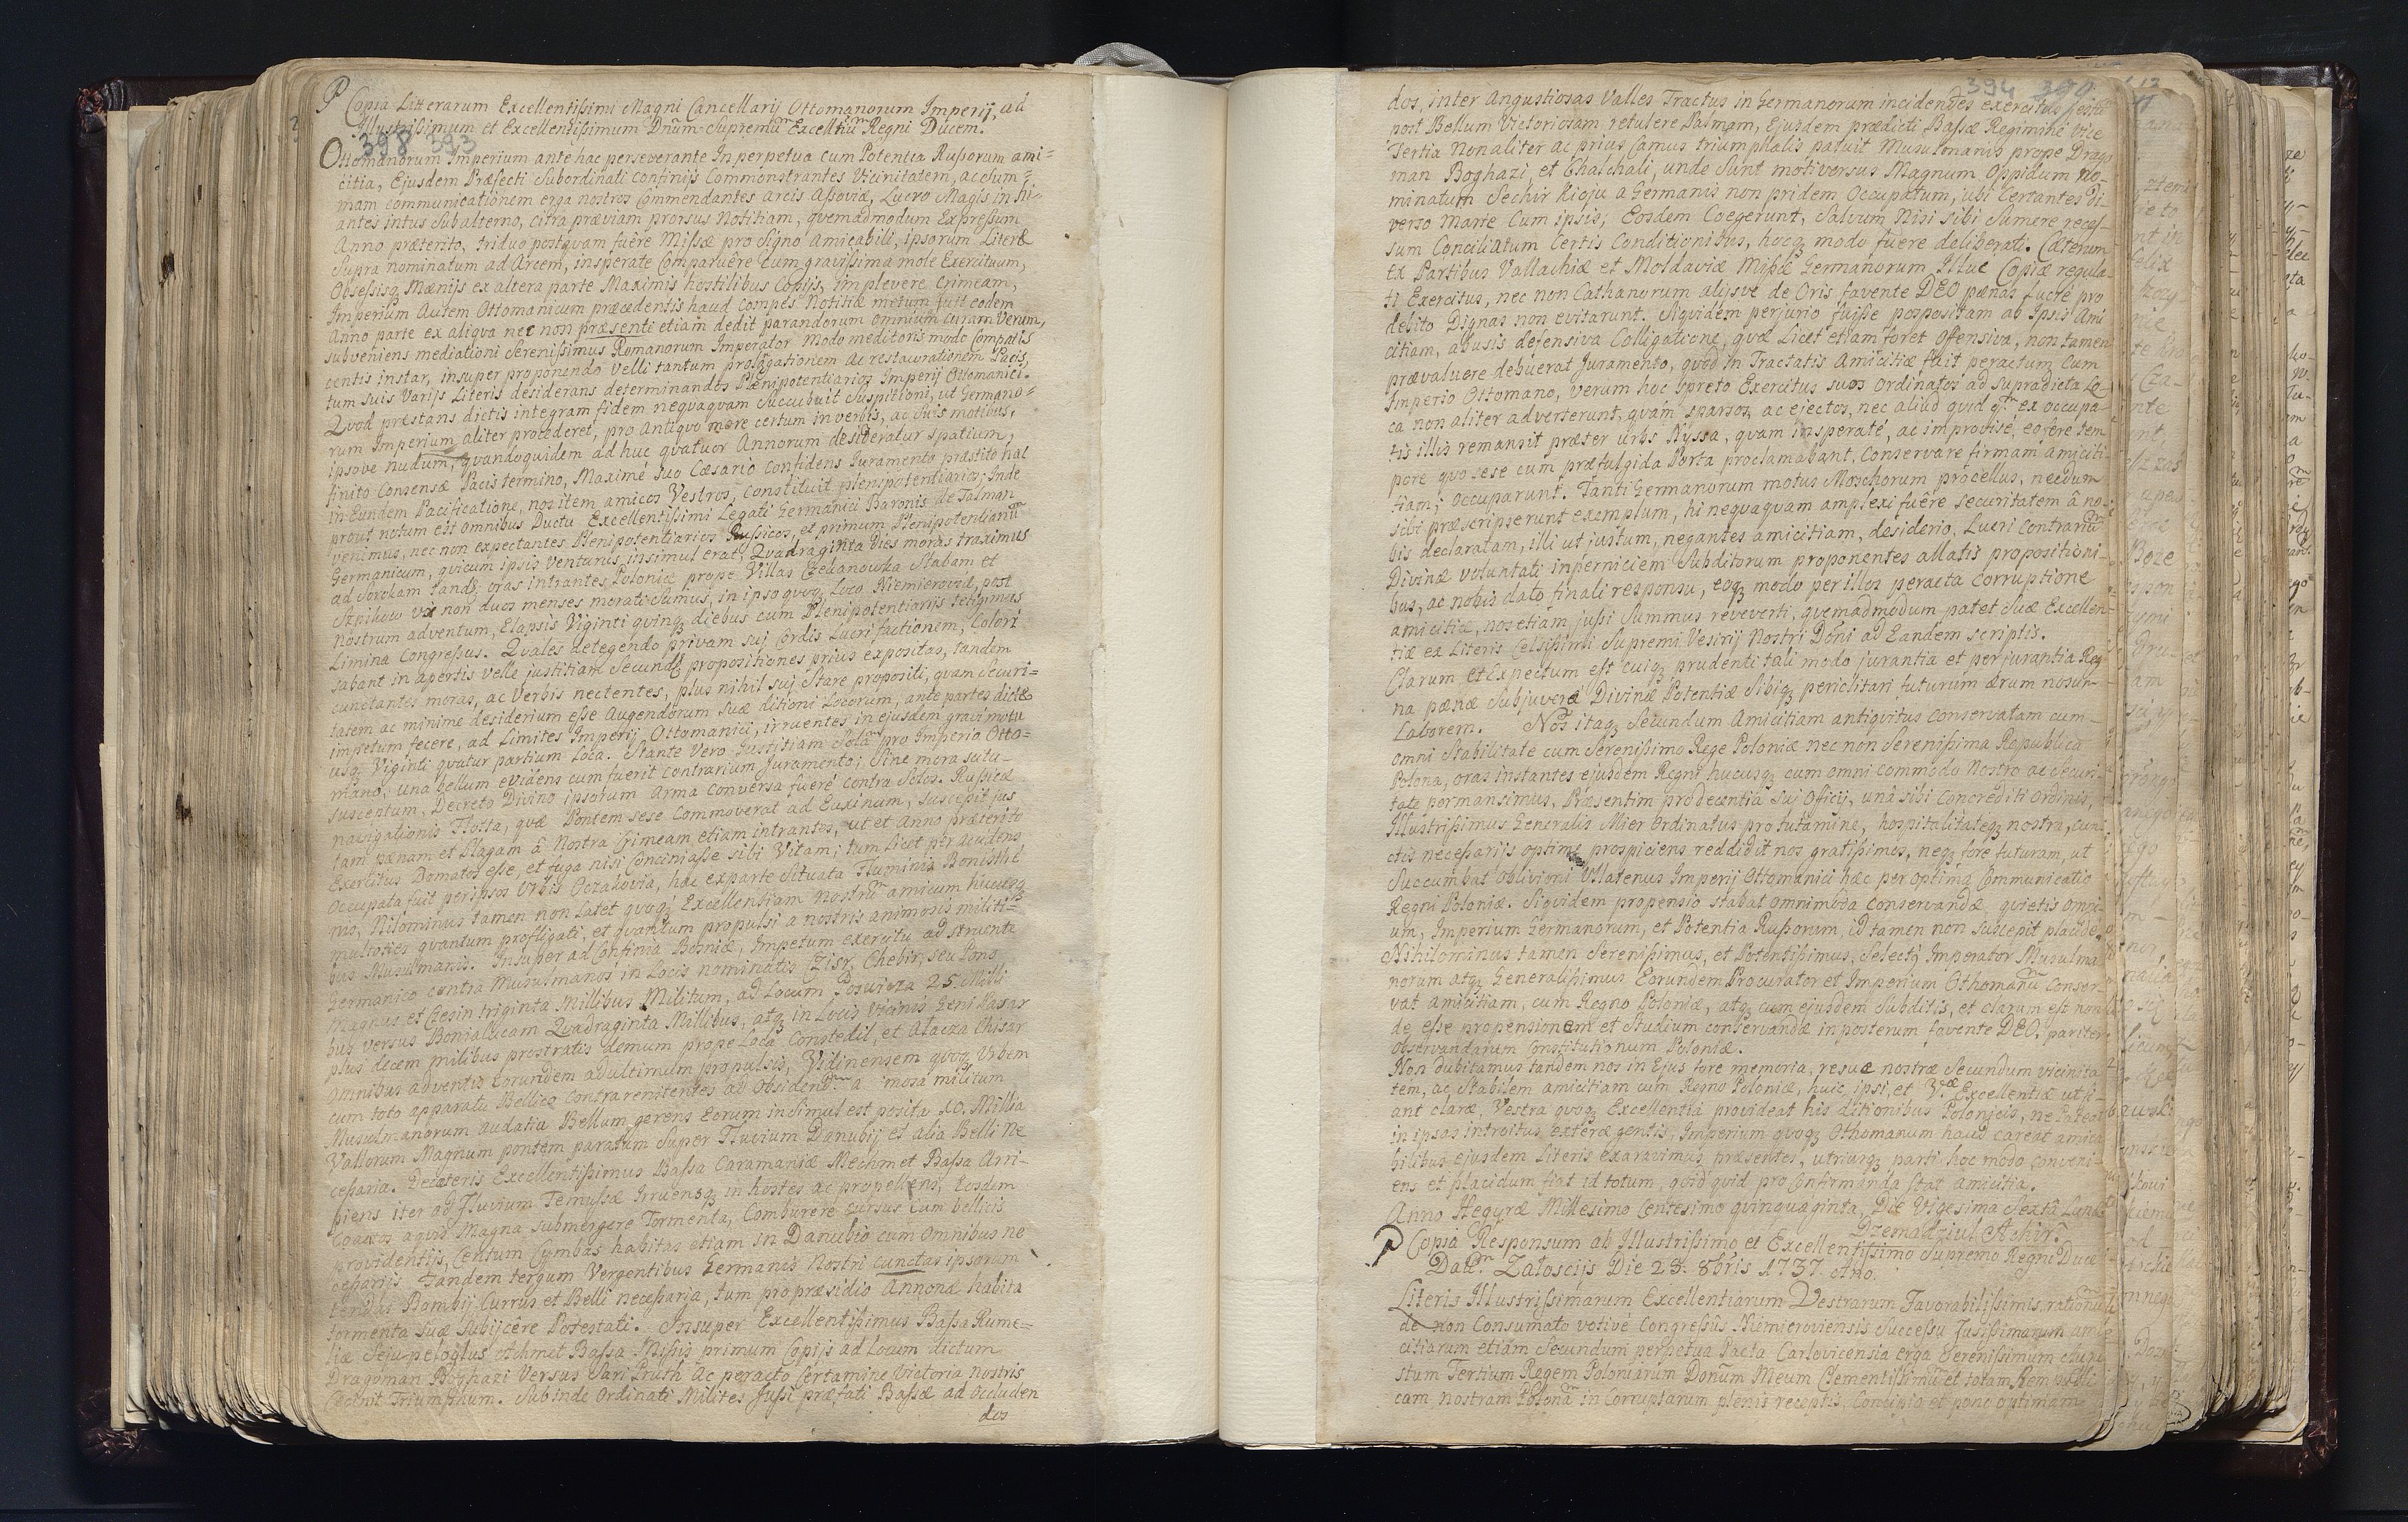 Copia Litterarum Excellentissimi Magni Cancellarij Ottomanorum Imperij, ad
Illustrissimum et Excellentissimum Dnum Supremu Excelltiu Regni Ducem.
398 393
Ottomanorum Imperium ante hac perseverante In perpetua cum Potentia Russorum ami=
citia, Ejusdem Præfecti Subordinati confinijs Commonstrantes Vicinitatem, ac sum=
mam communicationem erga nostros Commendantes Arcis Assoviæ, Lucro Magis inhi-
antes intus Subalterno, citra præviam prorsus Notitiam, qvemadmodum Expressum
Anno præterito, triduo postqvam fuêre Missæ pro Signo Amicabili, ipsorum Literæ
Supra nominatum ad Arcem, insperate Comparuêre cum gravissima mole Exercituum,
Obsessisq Mænijs ex altera parte Maximis hostilibus Copijs, Implevere Crimeam,
Imperium Autem Ottomanicum præcedentis haud compes Notitiæ metum eodem
Anno parte ex aliqva nec non præsenti etiam dedit parandorum omnium curam Verum,
subveniens mediationi Serenissimus Romanorum Imperator Modo meditoris modo Compatis
centis instar, insuper proponendo velli tantum prolongationem Ac restaurationem Pacis,
tum suis Varijs Literis desiderans determinandos Plenipotentiarios Imperij Ottomanici.
Qvod præstans dictis integram fidem neqvaqvam Succubuit Suspitioni, ut Germano=
rum Imperium aliter procederet, pro Antiqvo more certum in verbis, ac Suis motibus,
ipsove nudum, qvandoqvidem ad huc qvatuor Annorum desideratur spatium,
finito Consensæ Pacis termino, Maximé Suo Cæsario Confidens Juramento præstito hac
in Eundem Pacificatione, nos item amicos Vestros, Constituit plenipotentiarios; Inde
prout notum est omnibus Ductu Excellentissimi Legati Germanici Baronis de Talman
venimus, nec non expectantes Plenipotentiarios Russicos, et primum Plenipotentiariu
Germanicum, qvicum ipsis Venturis insimul erat, Qvadraginta Dies moras traximus
ad Sorokam tandê oras intrantes Poloniæ prope Villas Czekanowka Stabam et
Szpikow vix non duos menses morati Sumus, in ipso qvoq Loco Niemieroviæ, post
Nostrum adventum, Elapsis Viginti qvinq diebus cum Plenipotentiarijs tetigimus
Limina Congressus. Qvales detegendo privam suj Cordis Lucri factionem, Colori
sabant in apertis velle justitiam Secundu propositiones prius expositas, tandem
cunctantes moras, ac Verbis nectentes, plus nihil suj Stare propositi, qvam Securi=
tatem ac minime desiderium esse Augendorum Suæ ditioni Locorum, ante partes dictæ
impetum fecere, ad Limites Imperij Ottomanici, irruentes in ejusdem gravi motu
usq Viginti qvatuor partium Loca. Stante Vero Justitiam Sola pro Imperio Otto=
mano, una bellum evidens cum fuerit Contrarium Juramento; Sine mora scitu-
suscentum, Decreto Divino ipsorum Arma Conversa fuêré contra Solos. Russicæ
navigationis Flotta, qvæ Pontem sese Commoverat ad Euxinum, suscepit jus
tam pænam et Plagam â Nostra Crimeam etiam intrantes, ut et Anno præterito
Exercitus Domatos esse, et fuga nisi Conciniasse sibi Vitam; tum Licet per Accidens
Occupata fuit per ipsos Urbis Oczakovia, hac ex parte Situata Fluminis Bonisthé
mo, Nilominus tamen non Latet qvoq Excellentiam nostru amicum hucusq
multoties qvantum profligati, et qvantum propulsi a nostris animosis militi=
bus Musulmanis. Insuper ad Confinia Bosniæ, Impetum exercitu ad struente
Germanico contra Musulmanos in Locis nominatis Czisr Chebir, seu Pons
Magnus et Czesin triginta Millibus Militum, ad Locum Posuicza 25 Milli
bus versus Bonialucam Qvadraginta Millibus, atq in Locis Vicinis Jeni Kassar
plus decem milibus prostratis demum prope Loca Constedil, et Alacza Chisar
Omnibus adventis Eorundem adultimum propulsis, Vidinensem qvoq Urbem
cum toto apparatu Bellico Contra renitentes ad Obsidend a mosa militum
Musulmanorum audatia Bellum gerens Eorum insimul est positu 10. Millia
Vallorum Magnum pontem paratum super Fluvium Danubij et alia Belli Ne
cessaria. De cæteris Excellentissimus Bassa Caramaniæ Mechmet Bassa Arri-
piens iter ad Fluvium Temussæ Irruensq in hostes ac propellens, Eosdem
Coactos aqvis Magna submergere Tormenta, Comburere Currus cum bellicis
providentijs, Centum Cymbas habitas etiam in Danubio cum Omnibus ne
cessarijs tandem tergum Vergentibus Germanis Nostri cunctas ipsorum
tendas Bombij Currus et Belli necessaria, tum pro præsidio Annonæ habita
tormenta suæ Subijcêre Potestati. Insuper Excellentissimus Bassa Rume=
liæ Achmet Bassa Missis primum Copijs ad Locum dictum
Dragoman Boghazi Versus Sari Pruth Ac peracto Certamine Victoria nostris
Cecinit Triumphum. Subinde Ordinati Milites Jussi præfati Bassæ ad Occluden
dos
394
dos, inter Angustiosas Valles Tractus in Germanorum incidendes exercitus
post Bellum Victoriosam, retulere Palmam, Ejusdem prædicti Bassæ Regimine vice
Tertia Non aliter ac prius Camus triumphalis patuit Musulmanis prope Drago
man Boghazi, et Chalchali, unde Sunt moti versus Magnum Oppidum No-
minatum Sechir Kioju a Germanis non pridem Occupatum, ubi Certantes di-
verso Marte Cum ipsis; Eosdem Coegerunt, Salvum Nisi sibi Sumere reces-
sum Conciliatum Certis Conditionibus, hocq modo fuere deliberati. Cæterum
Ex Partibus Vallachiæ et Moldaviæ Missæ Germanorum Illuc Copiæ regula-
ti Exercitus, nec non Cathanorum alijsve de Oris favente DEO pænas fueré pro
debito Dignas non evitarunt. Siqvidem perjurio fuisse pospositam ab Ipsis Ami
citiam, abusis defensiva Colligatione, qvæ Licet etiam foret Offensiva, non tamen
prævaluere debuerat Juramento, qvod in Tractatis Amicitiæ fuit peractum Cum
Imperio Ottomano, Verum hoc spreto Exercitus suos Ordinatos ad supradicta Lo-
ca non aliter adverterunt, qvam sparsos, ac ejectos, nec aliud qvid ex occupa-
tis illis remansit præter Urbs Nyssa, qvam insperaté, ac improvise, eo fere tem
pore qvo sese cum præfulgida Porta proclamabant, Conservare firmam amiciti-
tiam; Occuparunt. Tanti Germanorum motus Moschorum procellus, necdum
sibi præscripserunt exemplum, hi neqvaqvam amplexi fuêre securitatem â no-
bis declaratam, illi ut justum, negantes amicitiam, desiderio, Lucri Contrariu
Divinæ voluntati inperniciem Subditorum proponentes allatis propositioni-
bus, ac nobis dato finali responsu, eoq modo per illos peracta Corruptione
amicitiæ, nos etiam jussi Summus reveverti, qvemadmodum patet Suæ Excellen-
tiæ ex Literis Celsissimi Supremi Vesirij Nostri Doni ad Eandem scriptis.
Clarum et Expectum est cuiq prudenti tali modo jurantia et perjurantia Reg
na pænæ Subjuveré Divinæ Potentiæ Sibiq periclitari futurum ærum nosum
Laborem. Nos itaq Secundum Amicitiam antiqvitus Conservatam cum-
omni Stabilitate cum Serenissimo Rege Poloniæ nec non Serenissima Republica
Polona, oras instantes ejusdem Regni hucusq cum omni commodo Nostro ac Securi-
tate permansimus, Præsentim pro decentia Suj Officij, unâ sibi Concrediti Ordinis,
Illustrissimus Generalis Mier Ordinatus pro tutamine, hospitalitateq nostra, cun-
ctis necessarijs optime prospiciens reddidit nos gratissimos, neq fore futuram, ut
Succumbat Oblivioni Ullatenus Imperij Ottomanici hæc per optima Communicatio
Regni Poloniæ. Siqvidem propensio stabat omnimoda Conservandæ qvietis omni-
um, Imperium Germanorum, et Potentia Russorum, id tamen non Suscepit placide.
Nihilominus tamen Serenissimus, et Potentissimus, Selectq Imperator Musulma
norum atq Generalissimus Eorundem Procurator et Imperium Othomanu Conser-
vat amicitiam, cum Regno Poloniæ, atq cum ejusdem Subditis, et clarum est non
de esse propensionem et Studium conservandæ in posterum favente DEO, pariter
observandarum Constitutionum Poloniæ.
Non dubitamus tandem nos in Ejus fore memoria, resuæ nostræ Secundum vicinita
tem, ac Stabilem amicitiam cum Regno Poloniæ, huic ipsi, et Væ Excellentiæ uti fi-
ant claræ, Vestra qvoq Excellentia provideat his ditionibus Polonicis, ne Pateat
in ipsas introitus exteræ gentis, Imperium qvoq Othomanum haud careat amica
bilibus ejusdem Literis exaravimus præsentes, utriusq parti hoc modo conveni-
ens et placidum fiat id totum, qvid qvid pro Confirmanda Stat Amicitia.
Anno Hegyræ Millesimo Centesimo qvinqvaginta, Die Vigesima Sexta Lunæ
Dzemadziul Achir
Copia Responsum ab Illustrissimo et Excellentissimo Supremo Regni Duce
Dat Zaloscijs Die 28. 8bris 1737. Ano.
Literis Illustrissimarum Excellentiarum Vestrarum Favorabilissimis, rationu
de non Consumato votivé Congressûs Niemiroviensis Successu Justissimarum ami-
citiarum etiam Secundum perpetua Pacta Carlovicensia erga Serenissimum Augu
stum Tertium Regem Poloniarum Donum Meum Clementissimu et totam Rem publi
cam nostram Polona in Corruptarum plenis receptis, Concipio et pono optimam